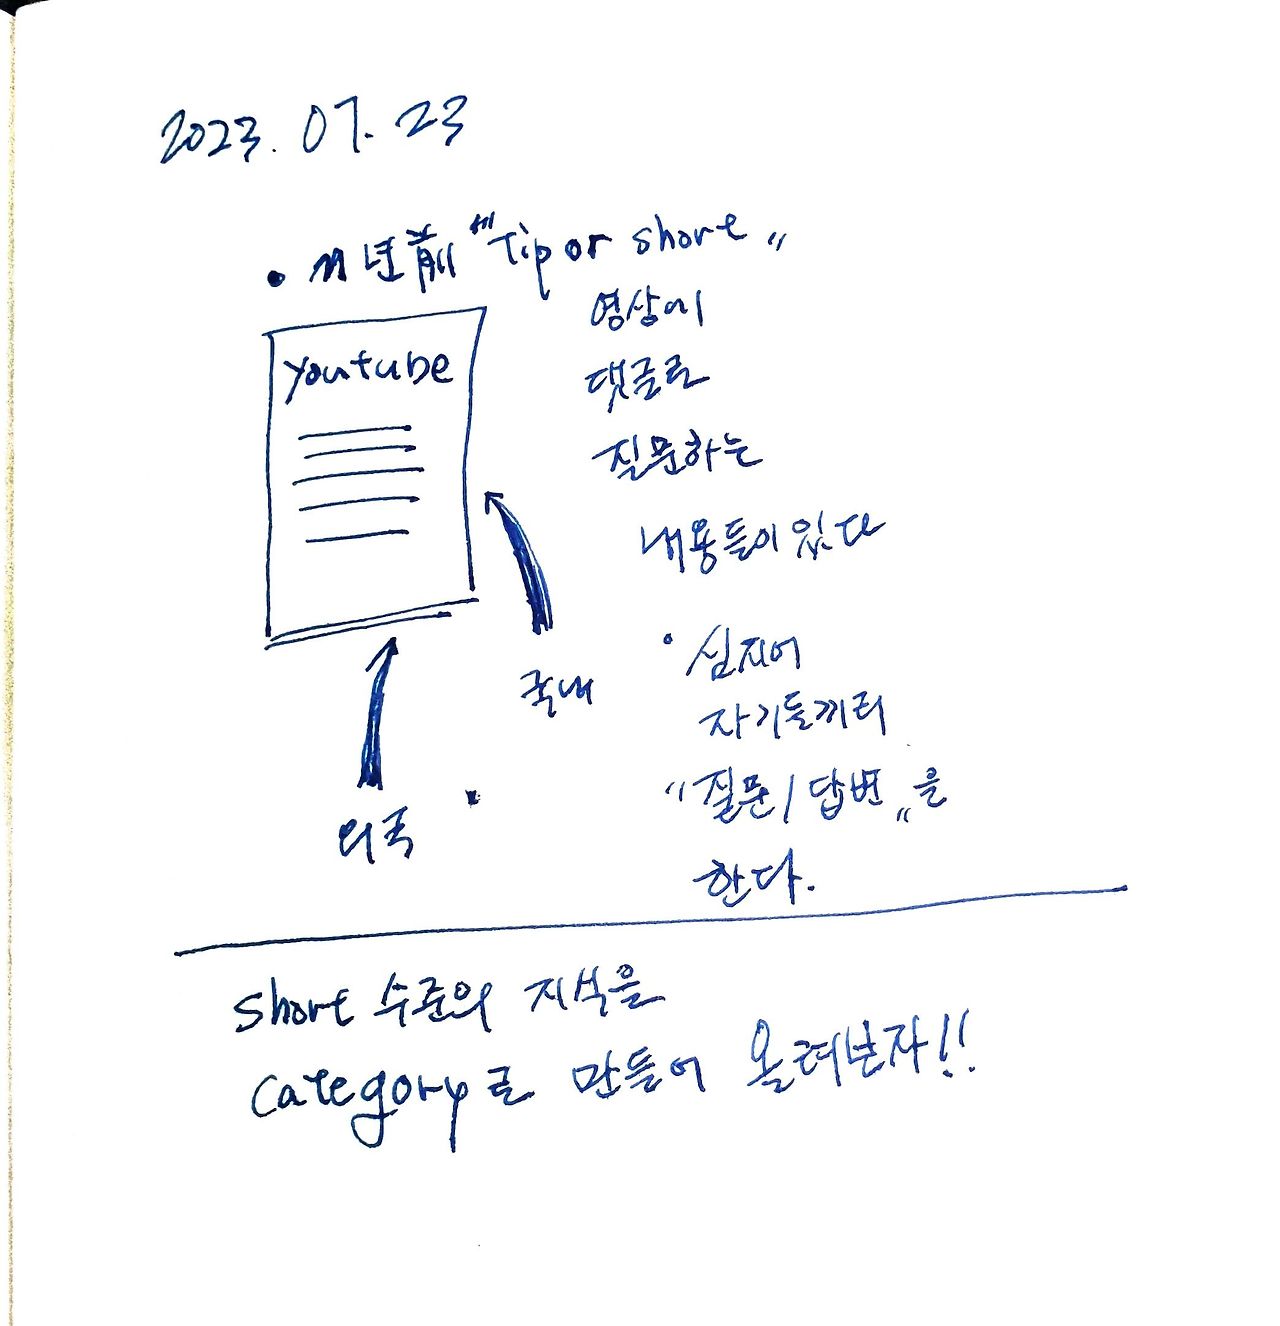 2023. 07. 23
• 年前 "Tip or short"
영상에
댓글로
질문하는
내용들이 있다
youtube
국내
외국
• 심지어
자기들끼리
"질문/답변"을
한다.
short 수준의 지식을
category로 만들어 올려보자!!